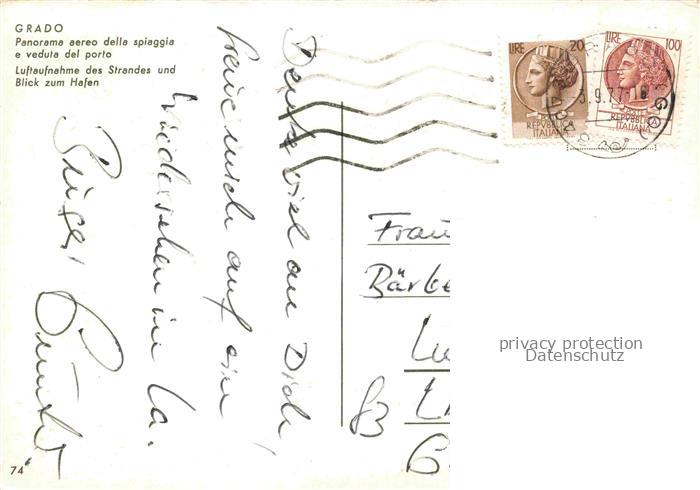 GRADO
Panorama aereo della spiaggia
e veduta del porto
Luftaufnahme des Strandes und
Blick zum Hafen
LIRE 20
REPVBBLICA
ITALIANA
LIRE 100
REPVBBLICA
ITALIANA
3.9.77-18
Denke viel an Dich,
freue mich auf ein
Wiedersehen in La.
Günter
Frau
Bärbe
83
privacy protection
Datenschutz
74